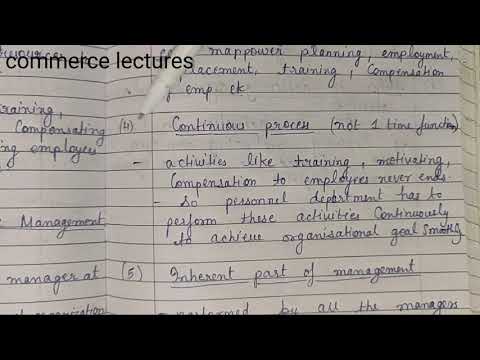 commerce lectures
manpower planning, employment,
placement, training, compensation
, emp etc.
training,
Compensating
employees
Management
manager at
organization
(4) Continuous proces (not 1 time function)
- activities like training, motivating,
Compensation to employees never ends.
- so personnel department has to
perform these activities Continuously
to achieve organisational goal smothly
(5) Inherent part of management
performed by all the managers